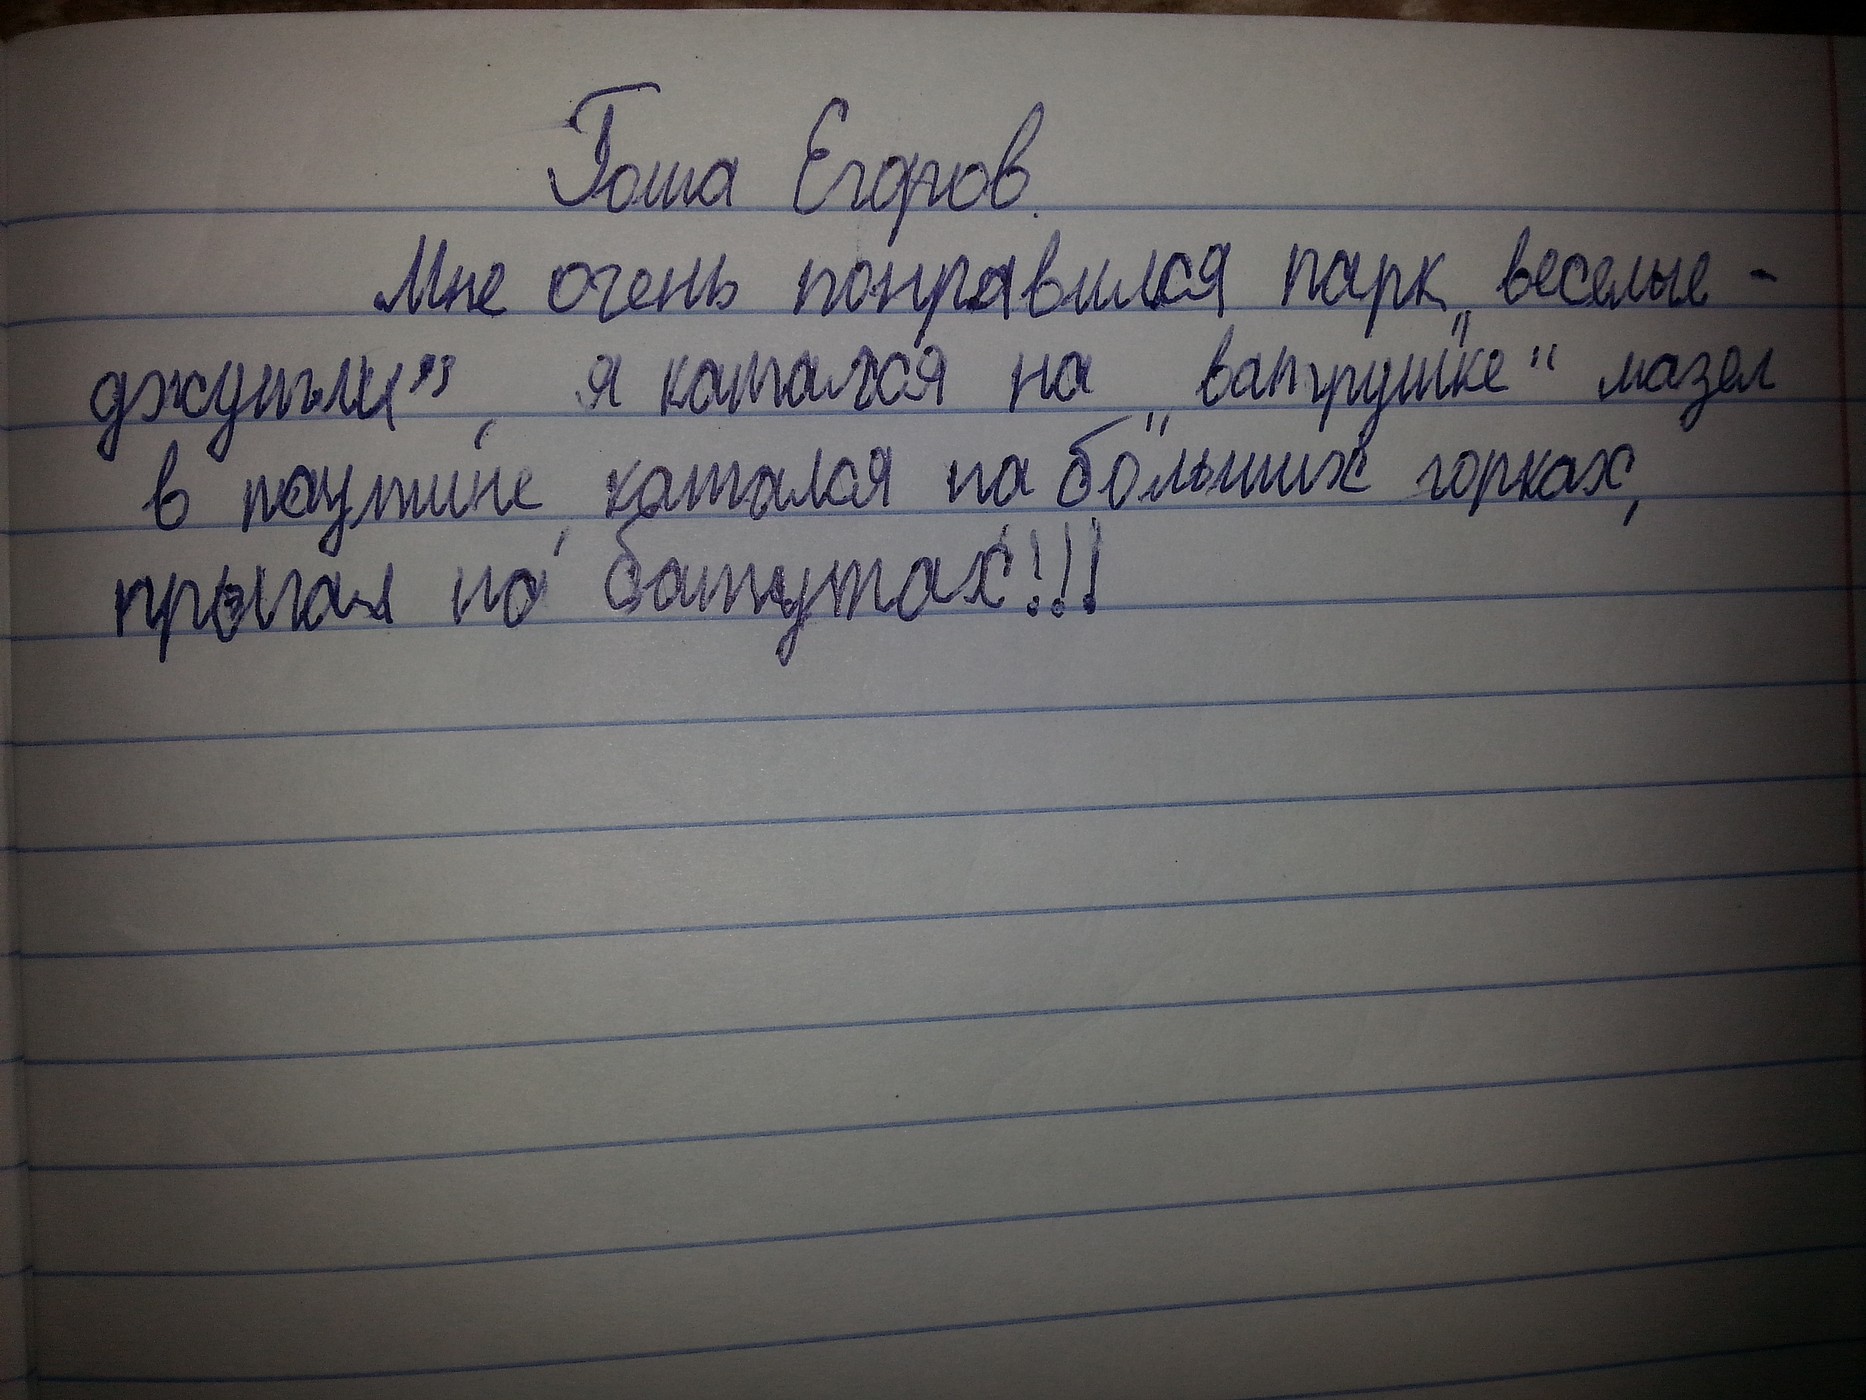 Гоша Егоров.
Мне очень понравился парк „веселые-
джунгли”, я катался на „ватрушке“ лазел
в паутине, катался на больших горках,
прыгал на батутах!!!